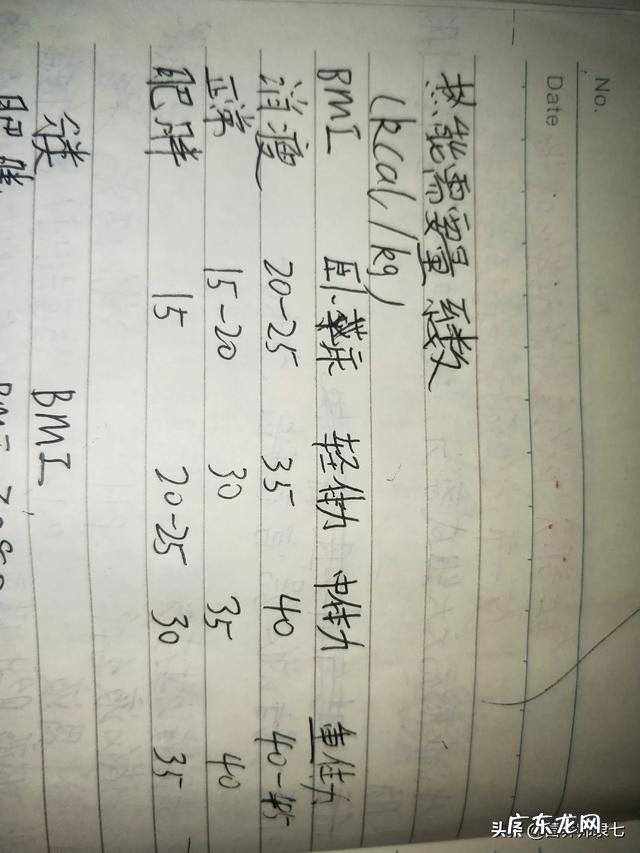 No.
Date
热能需要量系数
(kcal/kg)
BMI 卧床 轻体力 中体力 重体力
消瘦 20-25 35 40 40-45
正常 15-20 30 35 40
肥胖 15 20-25 30 35
BMI
肥胖 BMI
头条 七
广东龙网